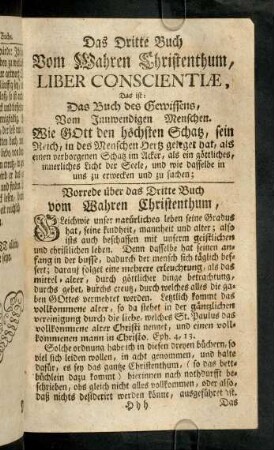 Das Dritte Buch
Vom Wahren Christenthum,
LIBER CONSCIENTIÆ,
Das ist:
Das Buch des Gewissens,
Vom Innwendigen Menschen.
Wie GOtt den höchsten Schatz, sein
Reich, in des Menschen Hertz geleget hat, als
einen verborgenen Schatz im Acker, als ein göttliches,
innerliches Licht der Seele, und wie dasselbe in
uns zu erwecken und zu suchen;
Vorrede über das Dritte Buch
vom Wahren Christenthum,
Gleichwie unser natürliches leben seine Gradus
hat, seine kindheit, mannheit und alter; also
ists auch beschaffen mit unserm geistlichen
und christlichen leben. Denn dasselbe hat seinen an-
fang in der busse, dadurch der mensch sich täglich bes-
sert; darauf folget eine mehrere erleuchtung, als das
mittel-alter, durch göttlicher dinge betrachtung,
durchs gebet, durchs creutz, durch welches alles die ga-
ben GOttes vermehret werden. Letzlich kommt das
vollkommene alter, so da stehet in der gäntzlichen
vereinigung durch die liebe, welches St. Paulus das
vollkommene alter Christi nennet, und einen voll-
kommenen mann in Christo. Eph. 4, 13.
Solche ordnung habe ich in diesen dreyen büchern, so
viel sich leiden wollen, in acht genommen, und halte
dafür, es sey das gantze Christenthum, (so das bet-
büchlein dazu kommt) hierinnen nach nothdurfft be-
schrieben, obs gleich nicht alles vollkommen, oder also,
daß nichts desideriret werden könne, ausgeführet ist.
Das